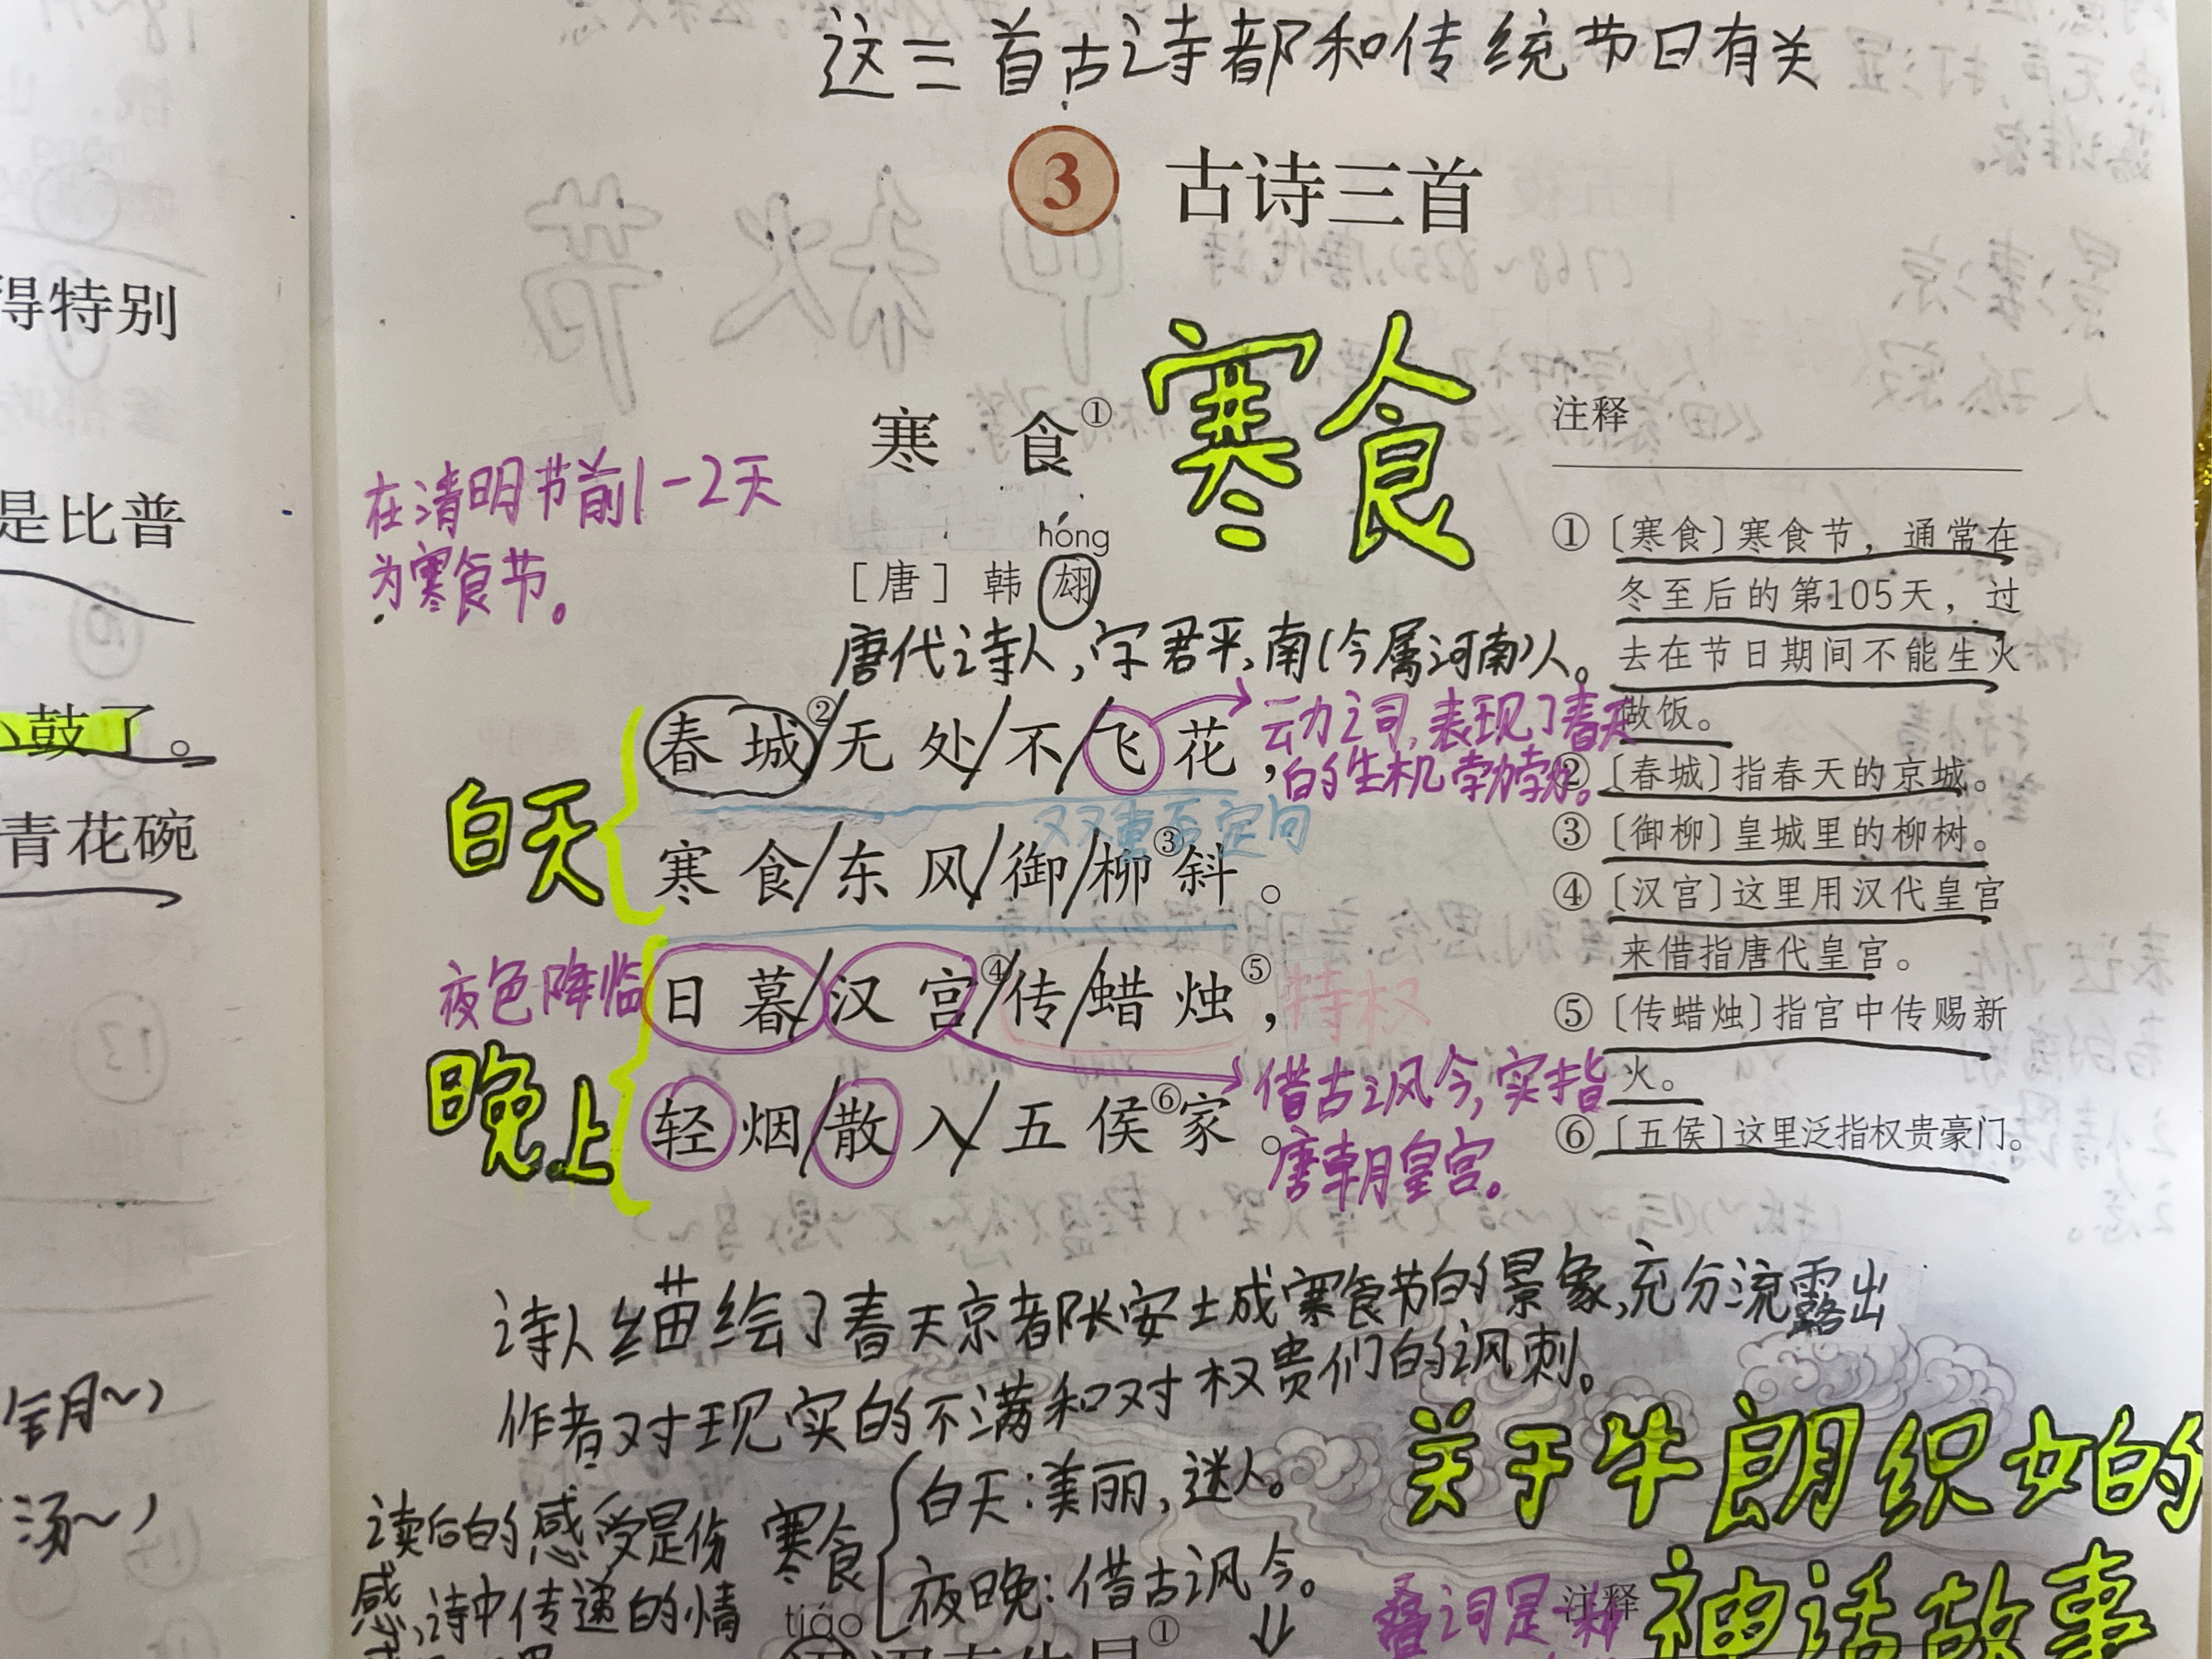 这三首古诗都和传统节日有关
3 古诗三首
寒食①
寒食
在清明节前1-2天
为寒食节。
hóng
[唐] 韩翃
唐代诗人,字君平,南(今属河南)人。
白天
春城②/无处/不/飞花,
动之词,表现了春天
的生机勃勃。
双重否定句
寒食/东风/御/柳③斜。
夜色降临
日暮/汉宫④/传/蜡烛⑤,
特权
晚上
轻烟/散入/五侯⑥家。
借古讽今,实指
唐朝皇宫。
注释
①〔寒食〕寒食节，通常在
冬至后的第105天，过
去在节日期间不能生火
做饭。
②〔春城〕指春天的京城。
③〔御柳〕皇城里的柳树。
④〔汉宫〕这里用汉代皇宫
来借指唐代皇宫。
⑤〔传蜡烛〕指宫中传赐新
火。
⑥〔五侯〕这里泛指权贵豪门。
诗人描绘了春天京都长安城寒食节的景象,充分流露出
作者对现实的不满和对权贵们的讽刺。
读后的感受是伤
感,诗中传递的情
寒食
白天:美丽,迷人。
夜晚:借古讽今。
tiáo
①
关于牛朗织女的
神话故事
叠词是一种
注释
得特别
是比普
小鼓了。
青花碗
汤~)